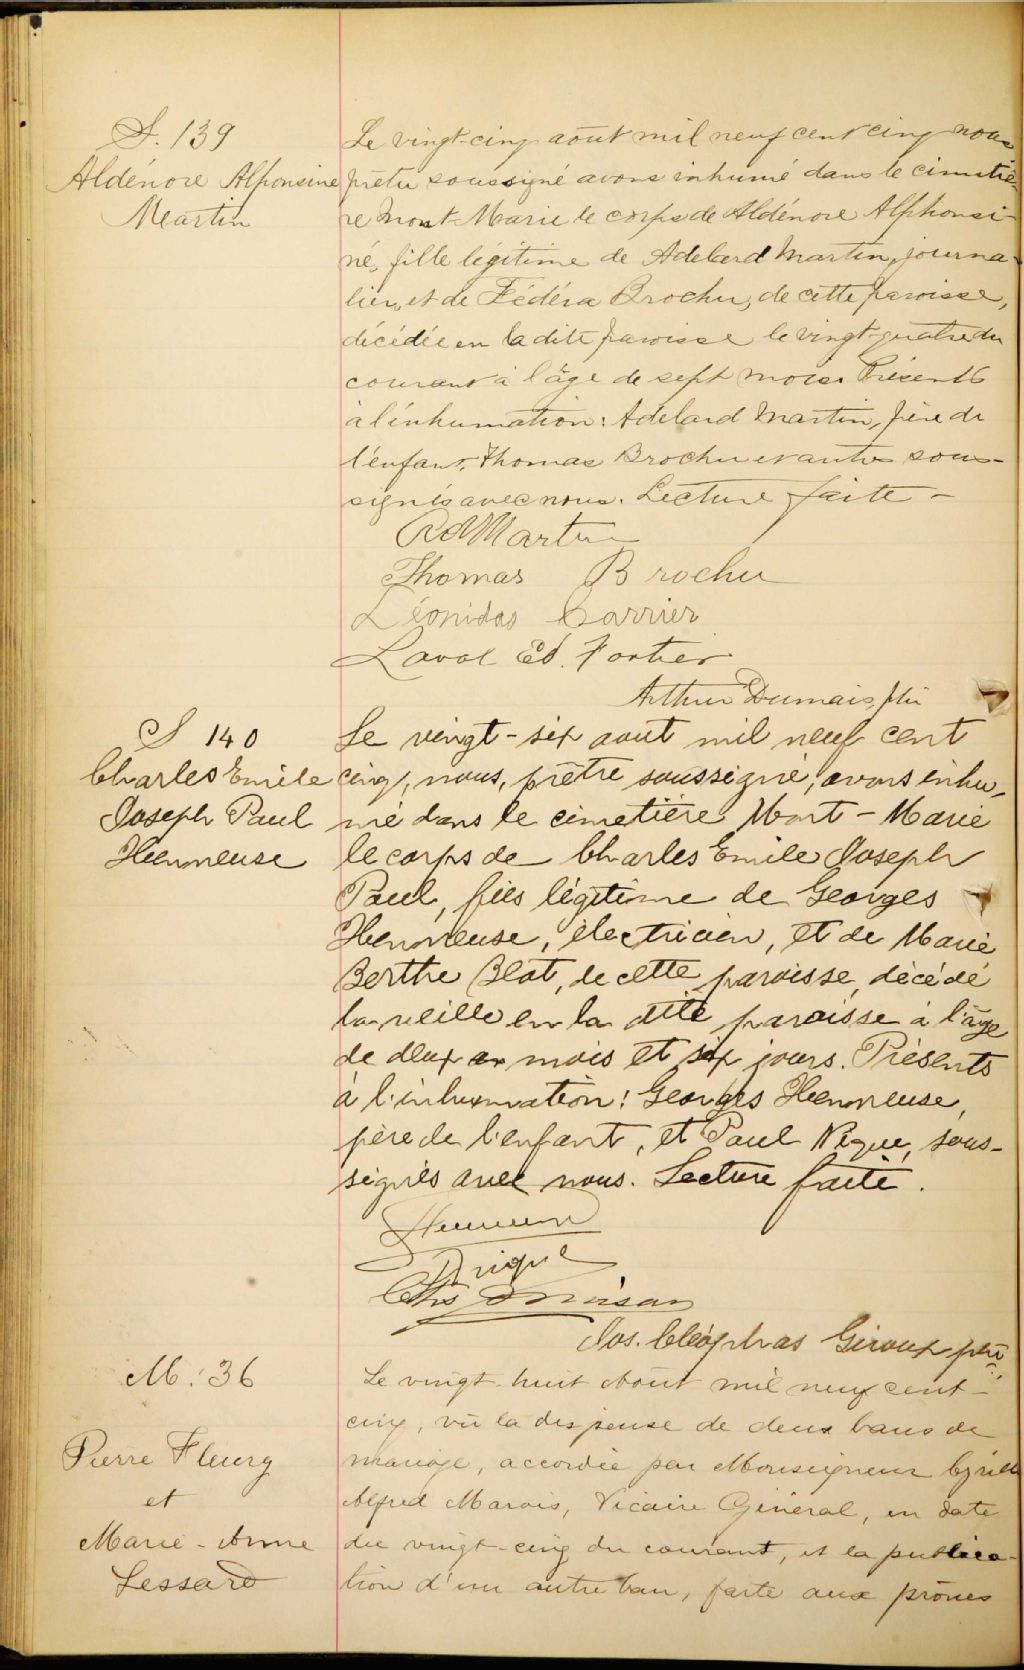 S. 139
Aldénore Alfonsine
Martin
Le vingt-cinq août mil neuf cent cinq nous
prêtre soussigné avons inhumé dans le cimetiè-
re Mont-Marie le corps de Aldénore Alphonsi-
ne, fille légitime de Adelard Martin, journa-
lier, et de Fédéra Brochu, de cette paroisse,
décédée en la dite paroisse le vingt-quatre du
courant à l'âge de sept mois. Présents
à l'inhumation: Adelard Martin, père de
l'enfant, Thomas Brochu et autres sous-
signés avec nous. Lecture faite -
Ad Martin
Thomas Brochu
Léonidas Carrier
Laval Ed. Fortier
Arthur Dumais, ptre
S 140
Charles Emile
Joseph Paul
Henneuse
Le vingt-six août mil neuf cent
cinq, nous, prêtre soussigné, avons inhu-
mé dans le cimetière Mont-Marie
le corps de Charles Emile Joseph
Paul, fils légitime de Georges
Henneuse, électricien, et de Marie
Berthe Blot, de cette paroisse, décédé
la veille en la dite paroisse à l'âge
de deux mois et six jours. Présents
à l'inhumation: Georges Henneuse,
père de l'enfant, et Paul sous-
signés avec nous. Lecture faite.
Jos. Cléophas Giroux ptre
M. 36
Pierre Fleury
et
Marie-Anne
Lessard
Le vingt-huit Août mil neuf cent-
cinq, vu la dispense de deux bans de
mariage, accordée par Monseigneur Cyrille
Alfred Marois, Vicaire Général, en date
du vingt-cinq du courant, et la publica-
tion d'un autre ban, faite aux prônes